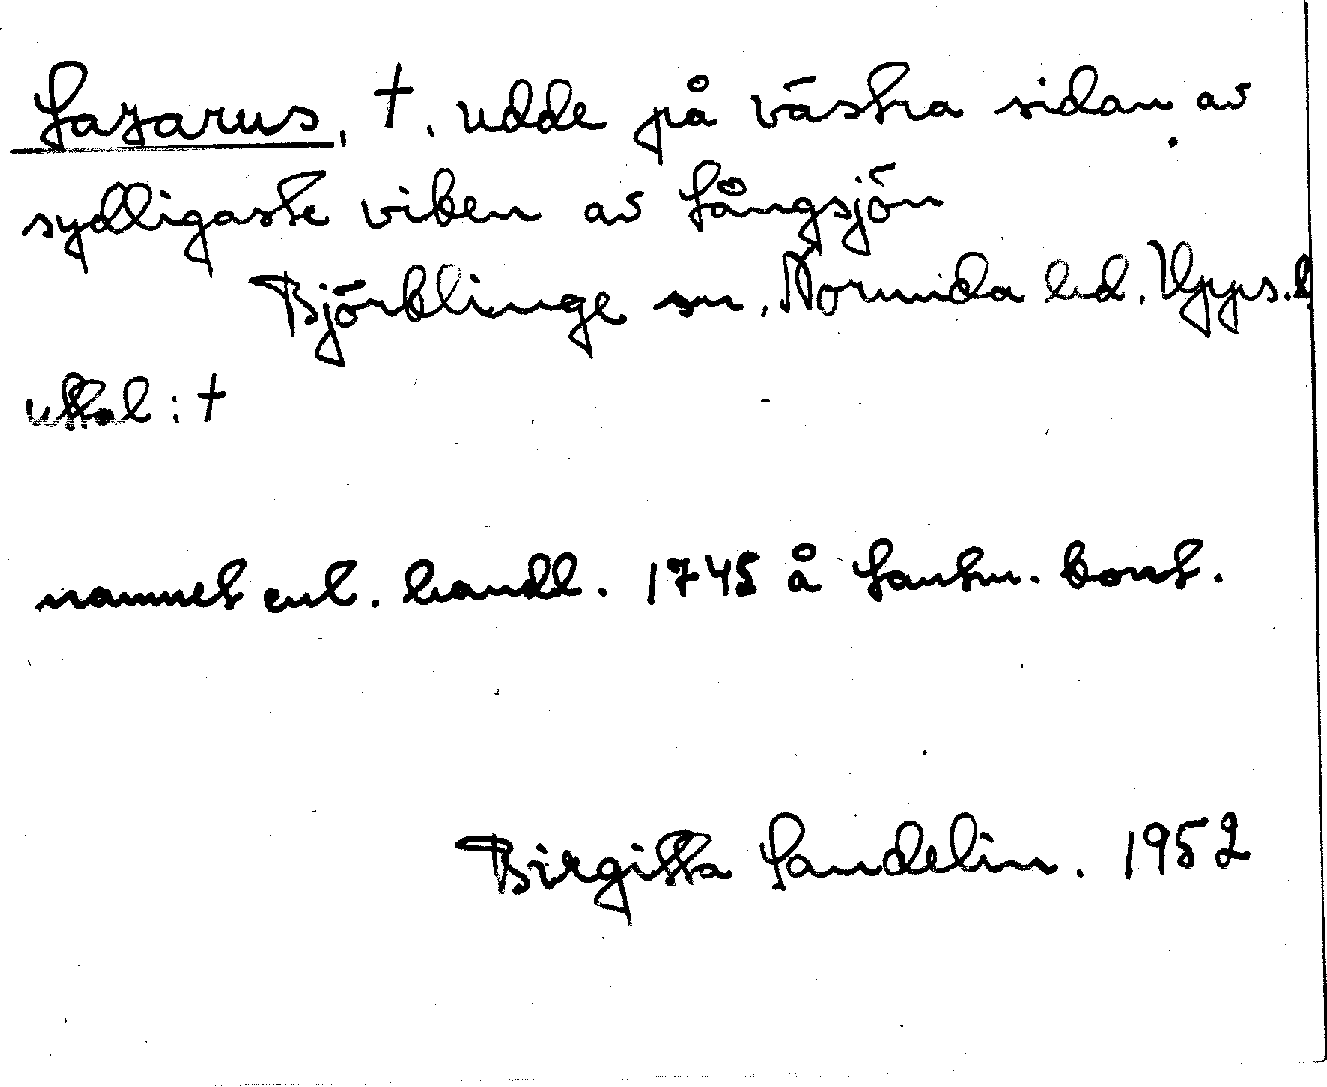 Lazarus, †. udde på västra sidan av
sydligaste viken av Långsjön
Björklinge sn, Norunda hd. Upps. l
uttal: †
namnet enl. handl. 1745 å Lantm. kont.
Birgitta Sandelin. 1952